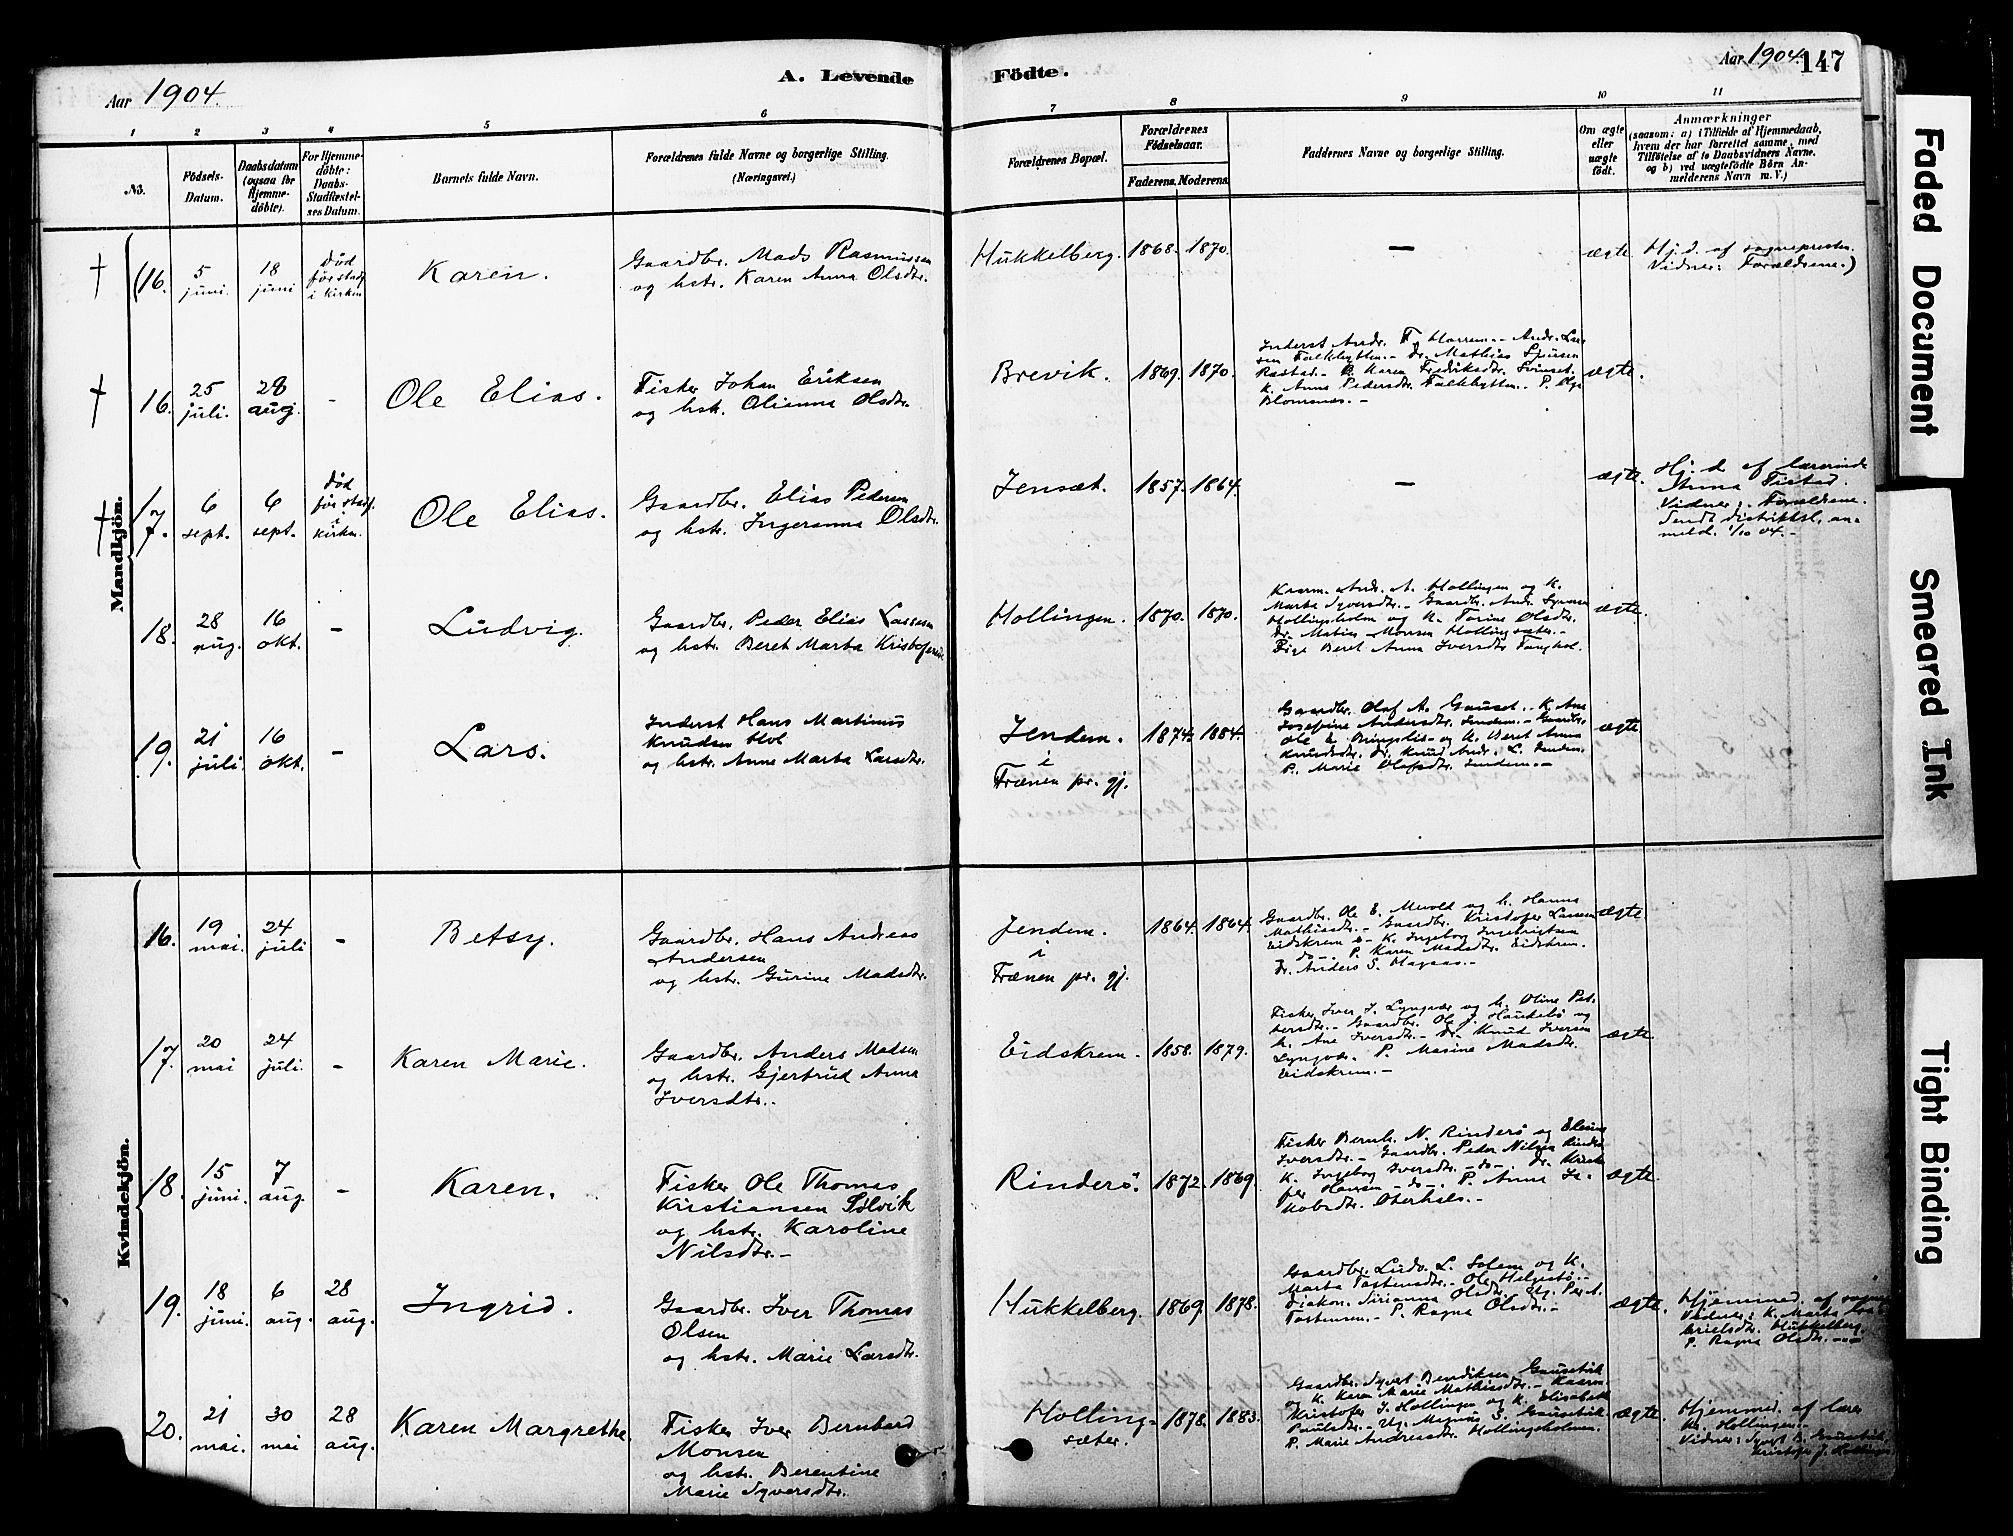 Aar 1904.
A. Levende
Födte.
Aar 1904.
147
1 2 3 4 5 6 7 8 9 10 11
No.
Födsels-
Datum.
Daabsdatum
(ogsaa for
Hjemme-
döbte).
For Hjemme-
döbte:
Daabs-
Stadfæstel-
ses Datum.
Barnets fulde Navn.
Forældrenes fulde Navne og borgerlige Stilling.
(Næringsvei.)
Forældrenes Bopæl.
Forældrenes
Födselsaar.
Faderens. Moderens.
Faddernes Navne og borgerlige Stilling.
Om ægte
eller
uægte
födt.
Anmærkninger
(saasom: a) i Tilfælde af Hjemmedaab,
hvem der har forrettet samme, med
Tilföielse af to Daabsvidners Navne,
og b) ved uægtefödte Börn An-
melderens Navn m. V.)
Mandkjön.
† (16. 5 juni. 18 juni død før stadf. i kirken Karen.
Gaardbr. Mads Rasmussen
og hstr. Karen Anna Olsdtr.
Hukkelberg. 1868. 1870. — ægte
Hj. d. af sognepresten.
Vidner: Forældrene.)
† 16. 25 juli. 28 aug. - Ole Elias.
Fisker Johan Eriksen
og hstr. Olianna Olsdtr.
Brevik. 1869. 1870.
Inderst Andr. T. Horrem.- Andr. Lar-
sen Falkhytten.- Mathias
Rastad.- Karen Fredriksdtr.
K. Anna Pedersdtr. Falkhytten. P. Olga
Blomsnes.-
ægte.
† 17. 6 sept. 6 sept. død før stadf. i kirken. Ole Elias.
Gaardbr. Elias Pedersen
og hstr. Ingeranna Olsdtr.
Jensæt. 1857. 1864. — ægte.
Hj. d. af lærerinde
Anna
Vidner: Forældrene.
Sendt distriktsl. an-
meld. 1/10 04.-
18. 28 aug. 16 okt. - Ludvig.
Gaardbr. Peder Elias Larssen
og hstr. Beret Marta
Hollingen. 1870. 1870.
Kaarm. Andr. A. Hollingen og K.
Marta Syversdtr.- Gaardbr. Andr.
Hollingsholm og K. Torine Olsdtr.
Monsen Hollingsæter.-
Pige Beret Anna Iversdtr.
ægte.
19. 21 juli. 16 okt. - Lars.
Inderst Hans Martinus
Knudsen
og hstr. Anne Marta Larsdtr.
Jendem.
i
Frænen pr. gj.
1874. 1884.
Gaardbr. Olaf A. Gauset.. K. Ane
Josefine Andersdtr. Jendem.- Gaardbr.
Ole og K. Beret Anna
Knudsdtr. Knud Andr. L. Jendem.
P. Marie Olafsdtr. Jendem.-
ægte
Kvindekjön.
16. 19 mai. 24 juli - Betsy.
Gaardbr. Hans Andreas
Andersen
og hstr. Gurine Madsdtr.
Jendem.
i
Frænen pr. gj.
1864. 1864.
Gaardbr. Ole E. og h. Hanna
Mathiasdtr.- Gaardbr. Kristofer Larssen
Eidskrem K. Ingeborg
- do -. P. Karen Madsdtr. Eidskrem.
Anders S.
ægte
17. 20 mai 24 juli. - Karen Marie.
Gaardbr. Anders Madsen
og hstr. Gjertrud Anna
Iversdtr..
Eidskrem. 1858. 1879.
Fisker Iver J. Lyngvær og h. Oline Pet-
tersdtr.- Gaardbr. Ole J. og
h. Ane Iversdtr.- Knud Iversen
Lyngvær. P. Masine Madsdtr.
Eidskrem.-
ægte.
18. 15 juni. 7 aug. - Karen.
Fisker Ole Thomas
Kristiansen Sølvik
og hstr. Karoline
Nilsdtr.-
Rinderö. 1872. 1869.
Fisker Bernh. N. Rinderö og
Iversdtr.- Gaardbr. Peder Nilsen
K. Ingeborg Iversdtr. - do -.
Hansen - do -. P. Anna
ægte.
19. 18 juni. 6 aug. 28 aug. Ingrid.
Gaardbr. Iver Thomas
Olsen
og hstr. Marie Larsdtr.
Hukkelberg. 1869. 1878.
Gaardbr. Ludv. L. Solem og K.
Marta Tostensdtr.- Ole
Olsdtr.
Tostensen.- P. Ragna Olsdtr.-
ægte.
Hjemmed. af
Vidner: K. Marta
Hukkelberg.
P. Ragna Olsdtr.-
20. 21 mai. 30 mai 28 aug. Karen Margrethe.
Fisker Iver Bernhard
Monsen
og hstr. Berentine
Marie Syversdtr.
Holling-
sæter.
1878. 1883.
Gaardbr. Syvert Bendiksen
og K. Karen Marie Mathiasdtr.- Kaarm.
Kristofer J. Hollingen og K. Elisabeth
Paulsdtr.- Magnus S.
P. Marie Andreasdtr. Hollingsholmen.
ægte.
Hjemmed. af lærer
Hollingen.-
Vidner: Syvert B.
Kristofer J.
Faded Document
Smeared Ink
Tight Binding